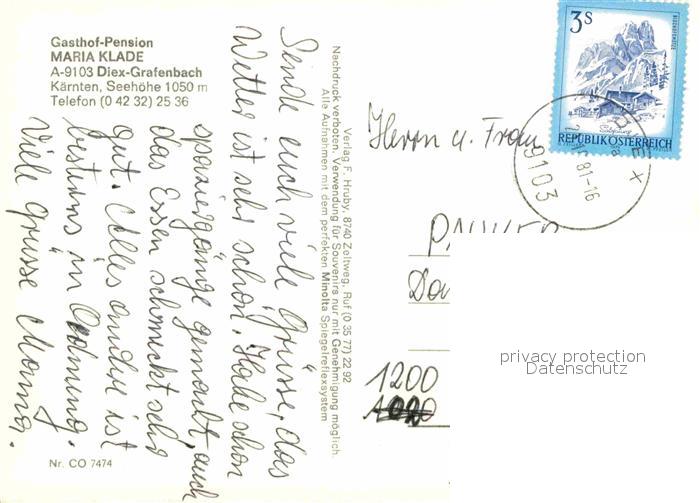 Gasthof-Pension
MARIA KLADE
A-9103 Diex-Grafenbach
Kärnten, Seehöhe 1050 m
Telefon (0 42 32) 25 36
Sende euch viele Grüsse, das
Wetter ist sehr schön. Habe schon
spaziergänge gemacht, auch
das Essen schmeckt sehr
gut. Alles andre ist
bestens in Ordnung.
Viele Grüsse Mama.
Nr. CO 7474
Verlag F. Hruby, 8740 Zeltweg, Ruf (0 35 77) 22 92
Nachdruck verboten. Verwendung für Souvenirs nur mit Genehmigung möglich.
Alle Aufnahmen mit dem perfekten Minolta Spiegelreflexsystem
3 S
BISCHOFSMÜTZE
Salzburg
REPUBLIK ÖSTERREICH
9103
81-16
Herrn u. Frau
1200
privacy protection
Datenschutz